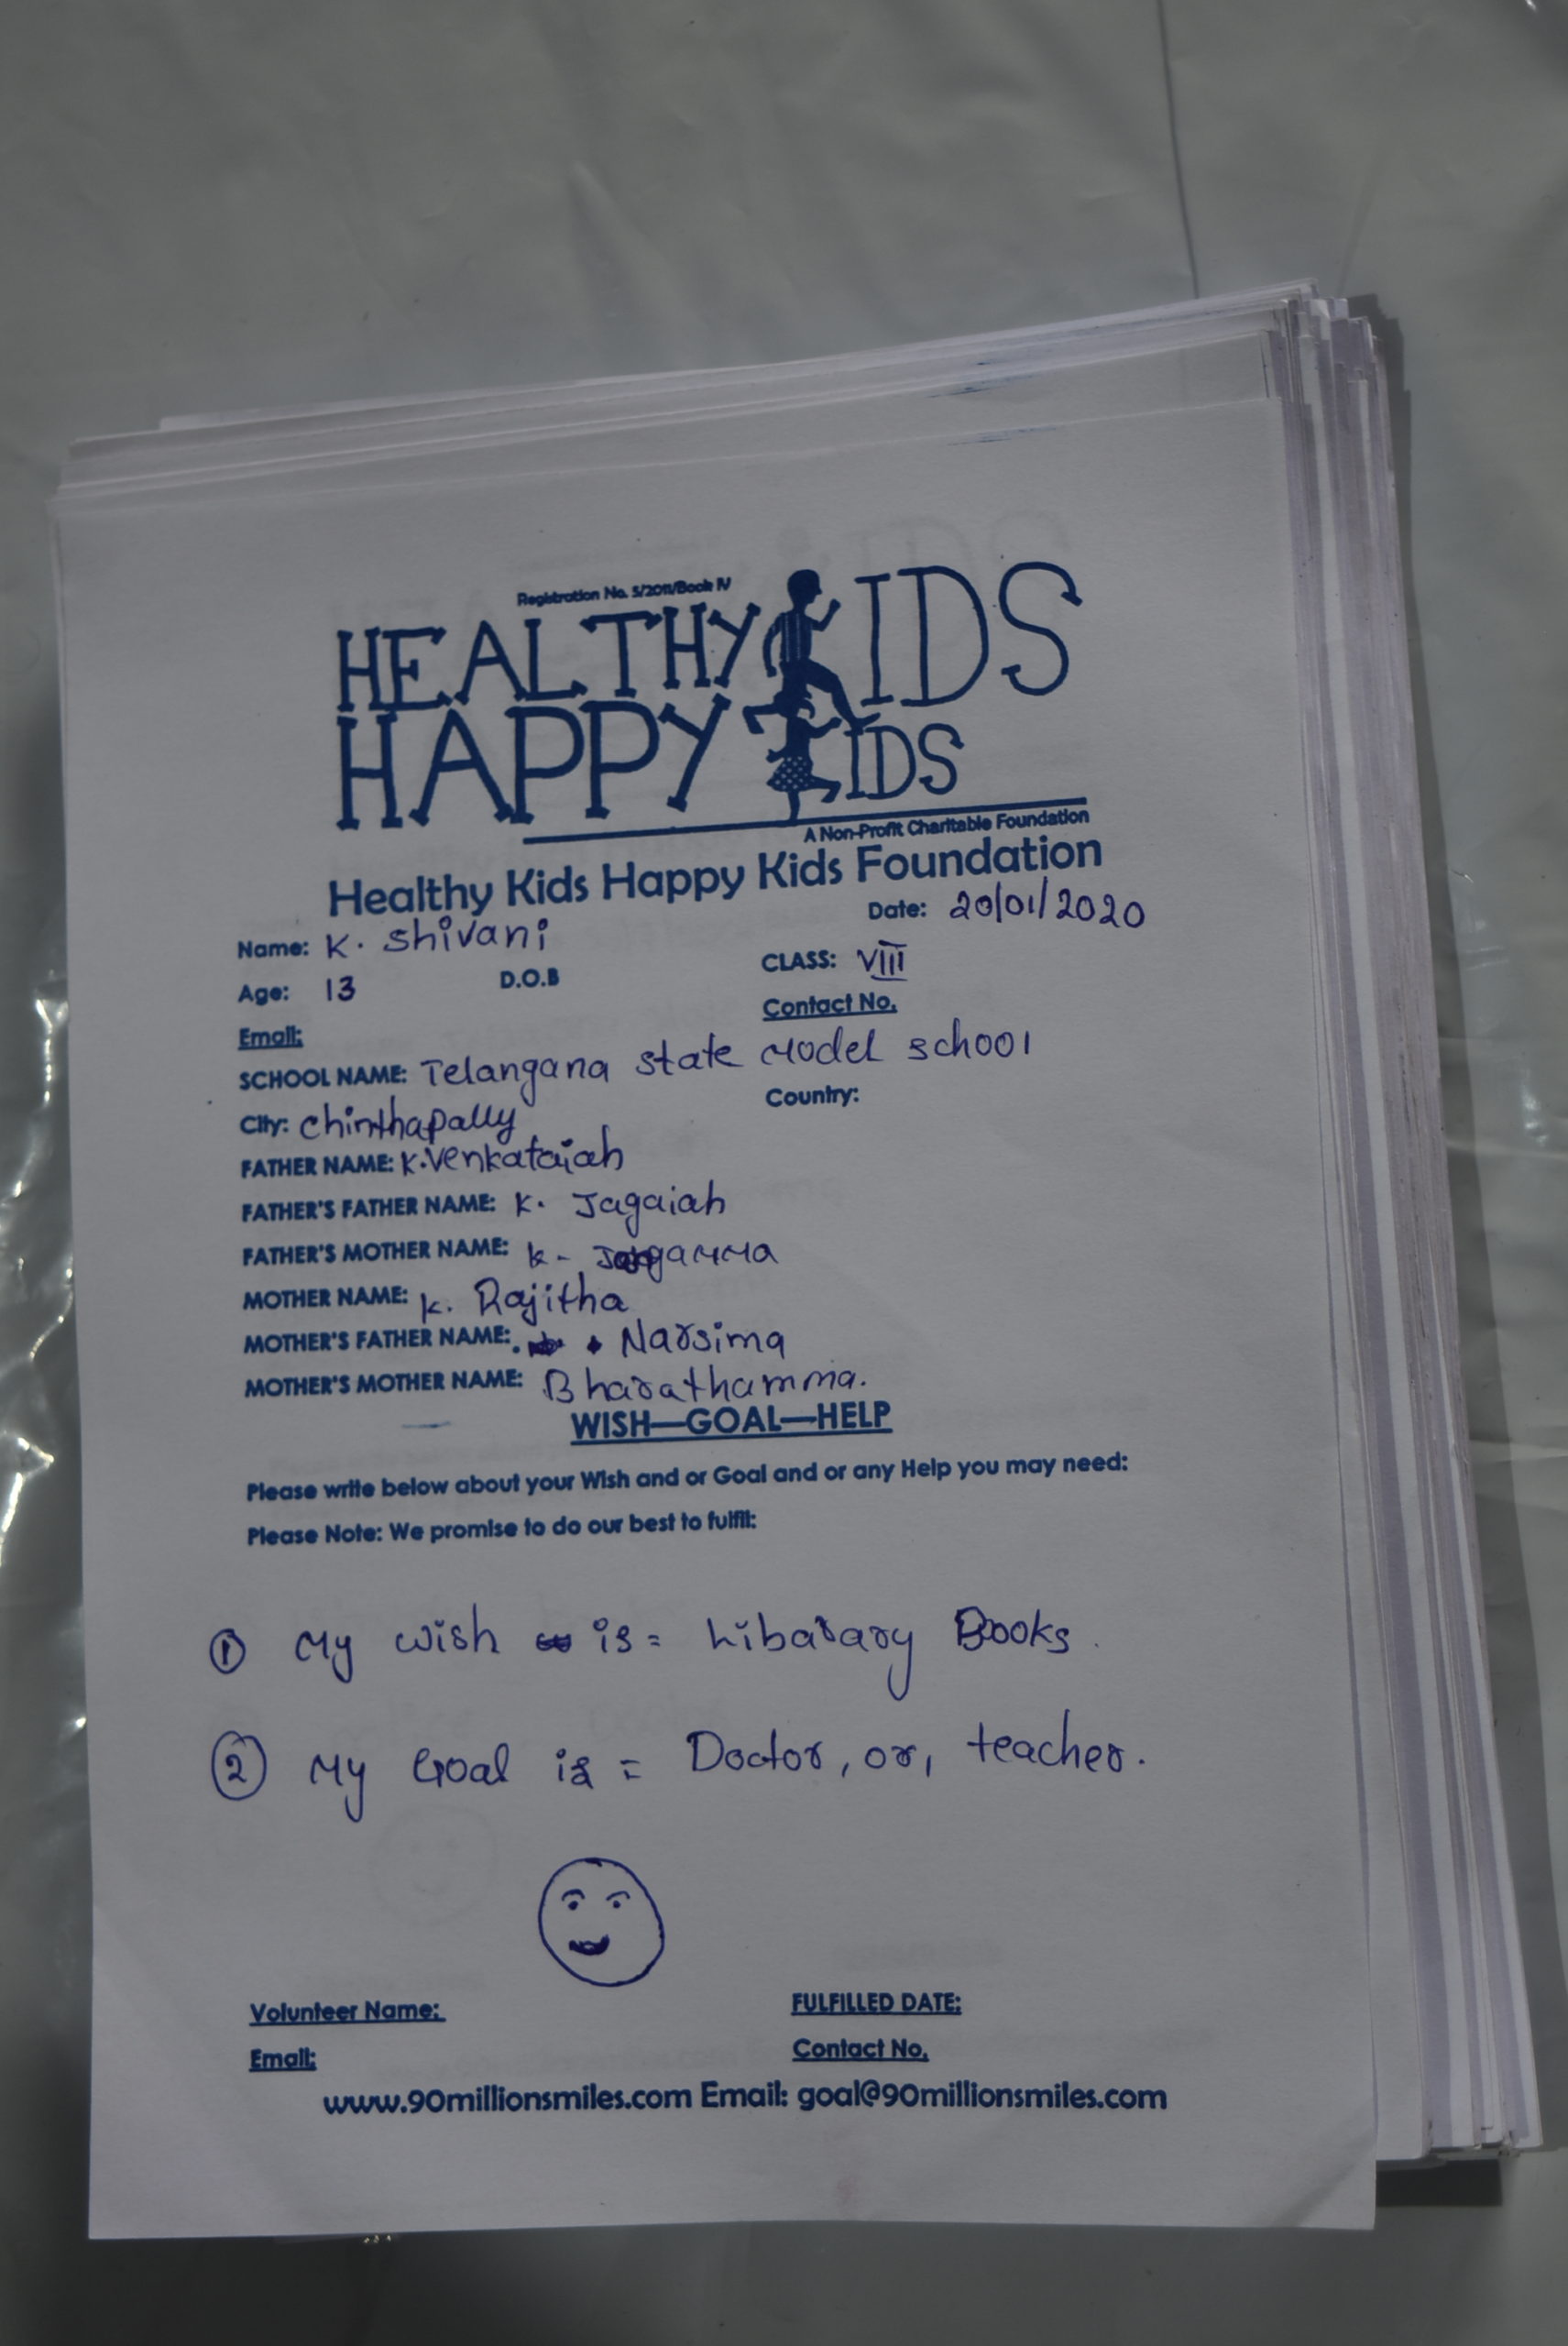 Registration No. 5/2011/Book IV
HEALTHY KIDS
HAPPY KIDS
A Non-Profit Charitable Foundation
Healthy Kids Happy Kids Foundation
Date: 20/01/2020
Name: K. Shivani
CLASS: VIII
Age: 13 D.O.B
Contact No.
Email:
SCHOOL NAME: Telangana state Model school
City: Chinthapally Country:
FATHER NAME: K.Venkataiah
FATHER'S FATHER NAME: K. Jagaiah
FATHER'S MOTHER NAME: K-
MOTHER NAME: K. Rajitha
MOTHER'S FATHER NAME: Narsima
MOTHER'S MOTHER NAME: Bharathamma.
WISH—GOAL—HELP
Please write below about your Wish and or Goal and or any Help you may need:
Please Note: We promise to do our best to fulfil:
① My wish is = Libarary Books.
② My Goal is = Doctor, or, teacher.
Volunteer Name: FULFILLED DATE:
Email: Contact No.
www.90millionsmiles.com Email: goal@90millionsmiles.com